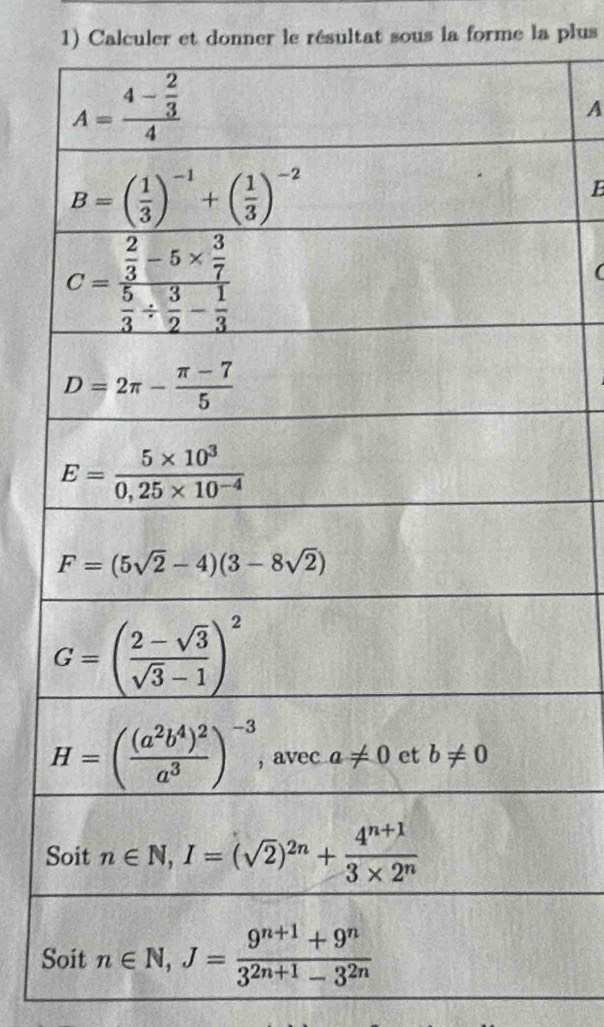 1) Calculer et donner le résultat sous la forme la plus
A = \frac{4 - \frac{2}{3}}{4}
A
B = \left(\frac{1}{3}\right)^{-1} + \left(\frac{1}{3}\right)^{-2}
C = \frac{\frac{2}{3} - 5 \times \frac{3}{7}}{\frac{5}{3} \div \frac{3}{2} - \frac{1}{3}}
D = 2\pi - \frac{\pi - 7}{5}
E = \frac{5 \times 10^{3}}{0,25 \times 10^{-4}}
F = (5\sqrt{2} - 4)(3 - 8\sqrt{2})
G = \left(\frac{2 - \sqrt{3}}{\sqrt{3} - 1}\right)^{2}
H = \left(\frac{(a^{2}b^{4})^{2}}{a^{3}}\right)^{-3}, avec a ≠ 0 et b ≠ 0
Soit n ∈ N, I = (\sqrt{2})^{2n} + \frac{4^{n+1}}{3 \times 2^{n}}
Soit n ∈ N, J = \frac{9^{n+1} + 9^{n}}{3^{2n+1} - 3^{2n}}